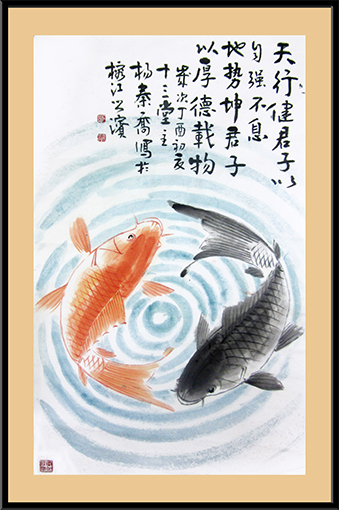 天行健君子以
自强不息
地势坤君子
以厚德载物
岁次丁酉初夏
十三堂主
杨秦乔写於
榕江之滨